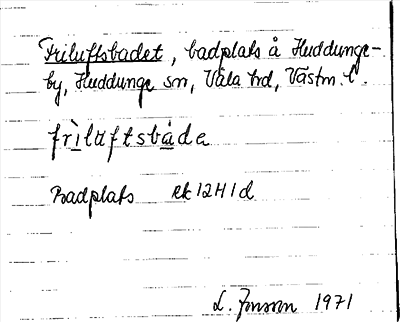 Friluftsbadet, badplats å Huddunge-
by, Huddunge sn, Våla hd, Västm. l.
frìluftsbàde
Badplats ek 12H1d
L. Jonson 1971